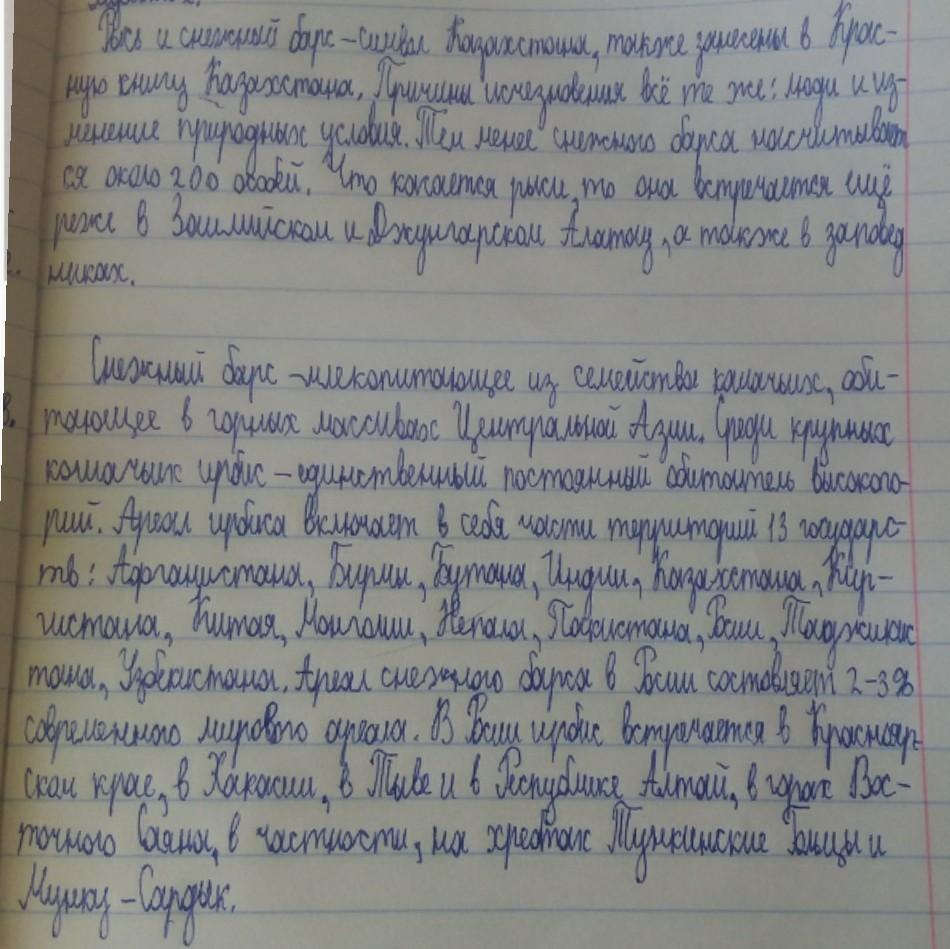 Рысь и снежный барс – символ Казахстана, также занесены в Крас-
ную книгу Казахстана. Причины исчезновения всё те же: люди и из-
менение природных условия. Тем менее снежного барса насчитывает
ся около 200 особей. Что касается рыси, то она встречается ещё
реже в Заилийском и Джунгарском Алатау, а также в заповед
никах.
Снежный барс – млекопитающее из семейства кошачьих, оби-
тающее в горных массивах Центральной Азии. Среди крупных
кошачьих ирбис – единственный постоянный обитатель высокого-
рий. Ареал ирбиса включает в себя части территорий 13 государс-
тв: Афганистана, Бирмы, Бутана, Индии, Казахстана, Кир-
гистана, Китая, Монголии, Непала, Пакистана, Росии, Таджикис
тана, Узбекистана. Ареал снежного барса в Росии составляет 2-3%
современного мирового ареала. В Росии ирбис встречается в Краснояр-
ском крае, в Хакасии, в Тыве и в Республике Алтай, в горах Вос-
точного Саяна, в частности, на хребтах Тункинские Гольцы и
Мунку – Сардык.